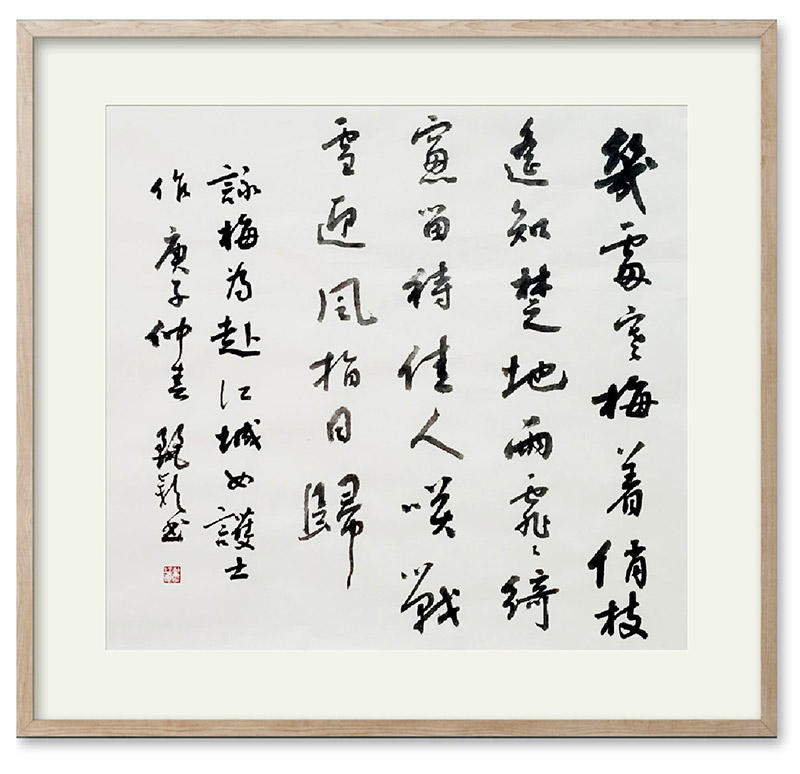 幾處寒梅着俏枝
遙知楚地雨霏〻綺
窻留待佳人咲戰
雪迎風指日歸
詠梅為赴江城女護士
作庚子仲春 書